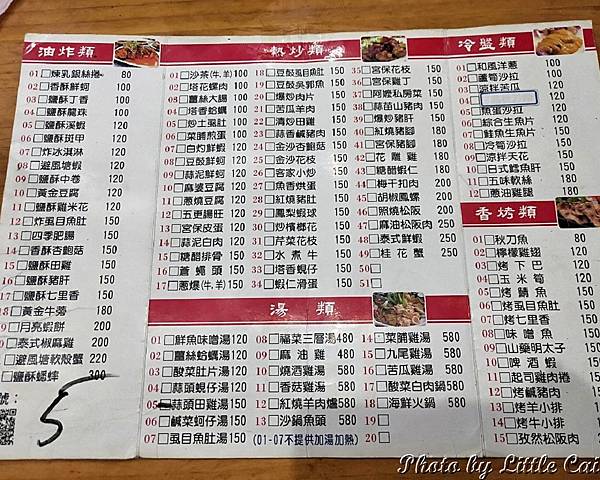 油炸類
01□煉乳銀絲捲 80
02□香酥鮮蚵 100
03□鹽酥丁香 100
04□鹽酥龍珠 100
05□鹽酥溪蝦 100
06□鹽酥斑甲 100
07□炸冰淇淋 120
08□避風塘蝦 120
09□鹽酥中卷 120
10□黃金豆腐 120
11□鹽酥雞米花 120
12□炸虱目魚肚 150
13□四季肥腸 150
14□香酥杏鮑菇 150
15□鹽酥田雞 150
16□鹽酥豬肝 150
17□鹽酥七里香 150
18□黃金牛蒡 180
19□月亮蝦餅 200
□泰式椒麻雞 200
□避風塘軟殼蟹 220
□鹽酥蟋蟀 300
號：
5
熱炒類
01□沙茶(牛.羊)100
02□塔花螺肉 100
03□薑絲大腸 100
04□塔香蛤蠣 100
05□炒土婆肚 100
06□菜脯煎蛋 100
07□白灼鮮蝦 120
08□豆鼓鮮蚵 120
09□蒜泥鮮蚵 120
10□麻婆豆腐 120
11□蔥燒豆腐 120
12□五更腸旺 120
13□宮保皮蛋 120
14□蒜泥白肉 120
15□糖醋排骨 150
16□蒼蠅頭 150
17□蔥爆(牛.羊)150
18□豆鼓虱目魚肚 150
19□豆鼓吳郭魚 150
20□爆炒肉片 150
21□苦瓜羊肉 150
22□清炒田雞 150
23□蒜香鹹豬肉 150
24□金沙杏鮑菇 150
25□金沙花枝 150
26□客家小炒 150
27□魚香烘蛋 150
28□紅燒豬肚 150
29□鳳梨蝦球 150
30□炒檳榔花 150
31□芹菜花枝 150
32□水煮牛 150
33□塔香蜆仔 150
34□蝦仁滑蛋 150
35□宮保花枝 150
36□宮保雞丁 150
37□阿嬤私房菜 150
38□蒜苗山豬肉 150
39□爆炒豬肝 150
40□紅燒豬腳 180
41□宮保豬腳 180
42□花雕雞 180
43□糖醋蝦仁 180
44□梅干扣肉 200
45□胡椒鳳螺 200
46□照燒松阪 200
47□麻油松阪肉 250
48□泰式鮮蝦 250
49□桂花蟹
50□
51□
冷盤類
01□和風洋蔥 100
02□蘆筍沙拉 100
03□涼拌苦瓜 100
04□
05□魚蛋沙拉 120
06□綜合生魚片
07□鮭魚生魚片
08□冷筍沙拉
09□涼拌天花
10□日式鱈魚肝
11□五味軟絲 180
12□蔥油雞腿 180
香烤類
01□秋刀魚 80
02□檸檬雞翅 120
03□烤下巴 120
04□玉米筍 120
05□烤鯖魚
06□烤七里香
07□烤牛肉
08□味噌魚
09□山藥明太子
10□啤酒蝦
11□起司雞肉捲
12□烤鹹豬肉
13□烤羊小排
14□烤牛小排
15□孜然松阪肉
湯類
01□鮮魚味噌湯150
02□薑絲蛤蠣湯150
03□酸菜肚片湯150
04□蒜頭蜆仔湯150
05□蒜頭田雞湯150
06□鹹菜蚵仔湯150
07□虱目魚肚湯150
08□福菜三層湯480
09□麻油雞 580
10□燒酒雞 580
11□香菇雞 580
12□紅燒羊肉爐580
13□沙鍋魚頭 580
(01-07不提供加湯加熱)
14□菜脯雞湯 580
15□九尾雞湯 580
16□苦瓜雞湯 580
17□酸菜白肉鍋580
18□海鮮火鍋 580
19□
20□
Photo by Little Cai